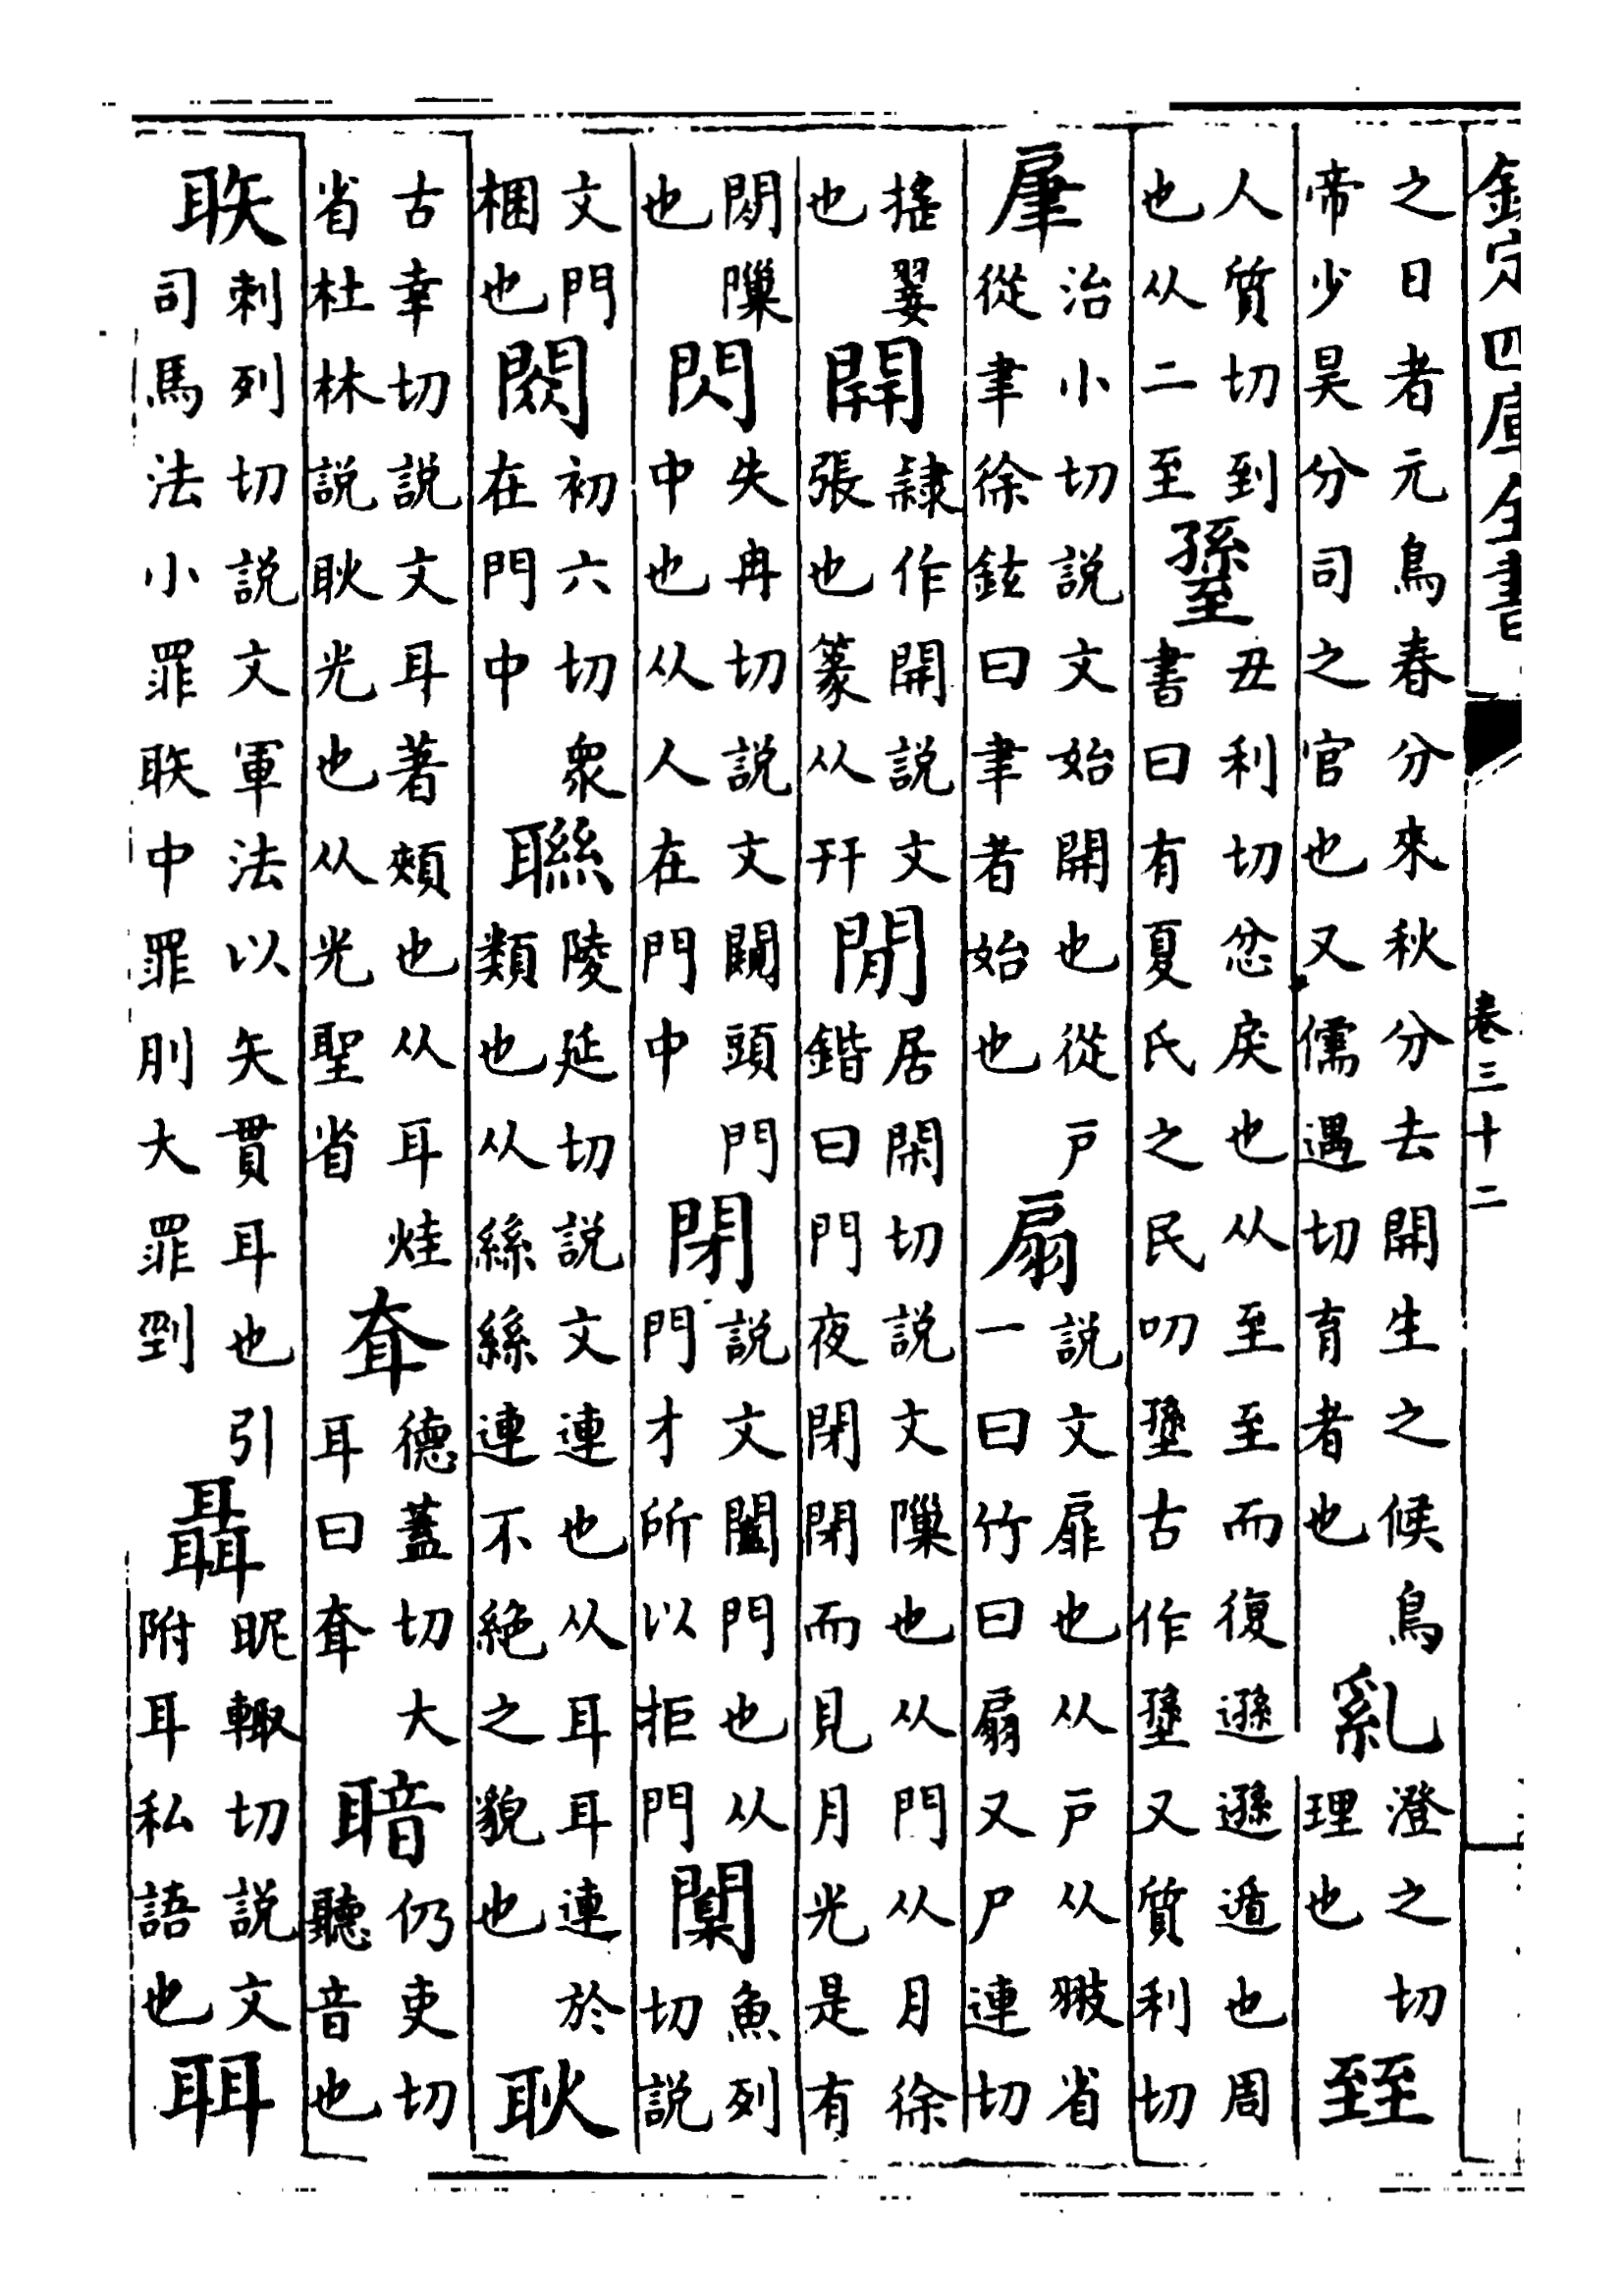 欽定四庫全書 卷三十二
之日者元鳥春分來秋分去開生之候鳥
帝少昊分司之官也又儒遇切育者也
亂
澄之切
理也
臸
人質切到
也从二至
丑利切忿戾也从至至而復遜遜遁也周
書曰有夏氏之民叨古作又質利切
肁
治小切説文始開也從戸
從聿徐鉉曰聿者始也
扇
説文扉也从戸从翄省
一曰竹曰扇又尸連切
搖翣
也
開
隷作開説文
張也篆从幵
閒
居閑切説文隟也从門从月徐
鍇曰門夜閉閉而見月光是有
閒隟
也
閃
失冉切説文闚頭門
中也从人在門中
閉
説文闔門也从
門才所以拒門
闑
魚列
切説
文門
梱也
閦
初六切衆
在門中
聯
陵延切説文連也从耳耳連於
類也从絲絲連不絶之貌也
耿
古幸切説文耳著頰也从耳烓
省杜林説耿光也从光聖省
耷
德蓋切大
耳曰耷
仍吏切
聽音也
聅
刺列切説文軍法以矢貫耳也引
司馬法小罪聅中罪刖大罪剄
聶
昵輒切説文
附耳私語也
聑